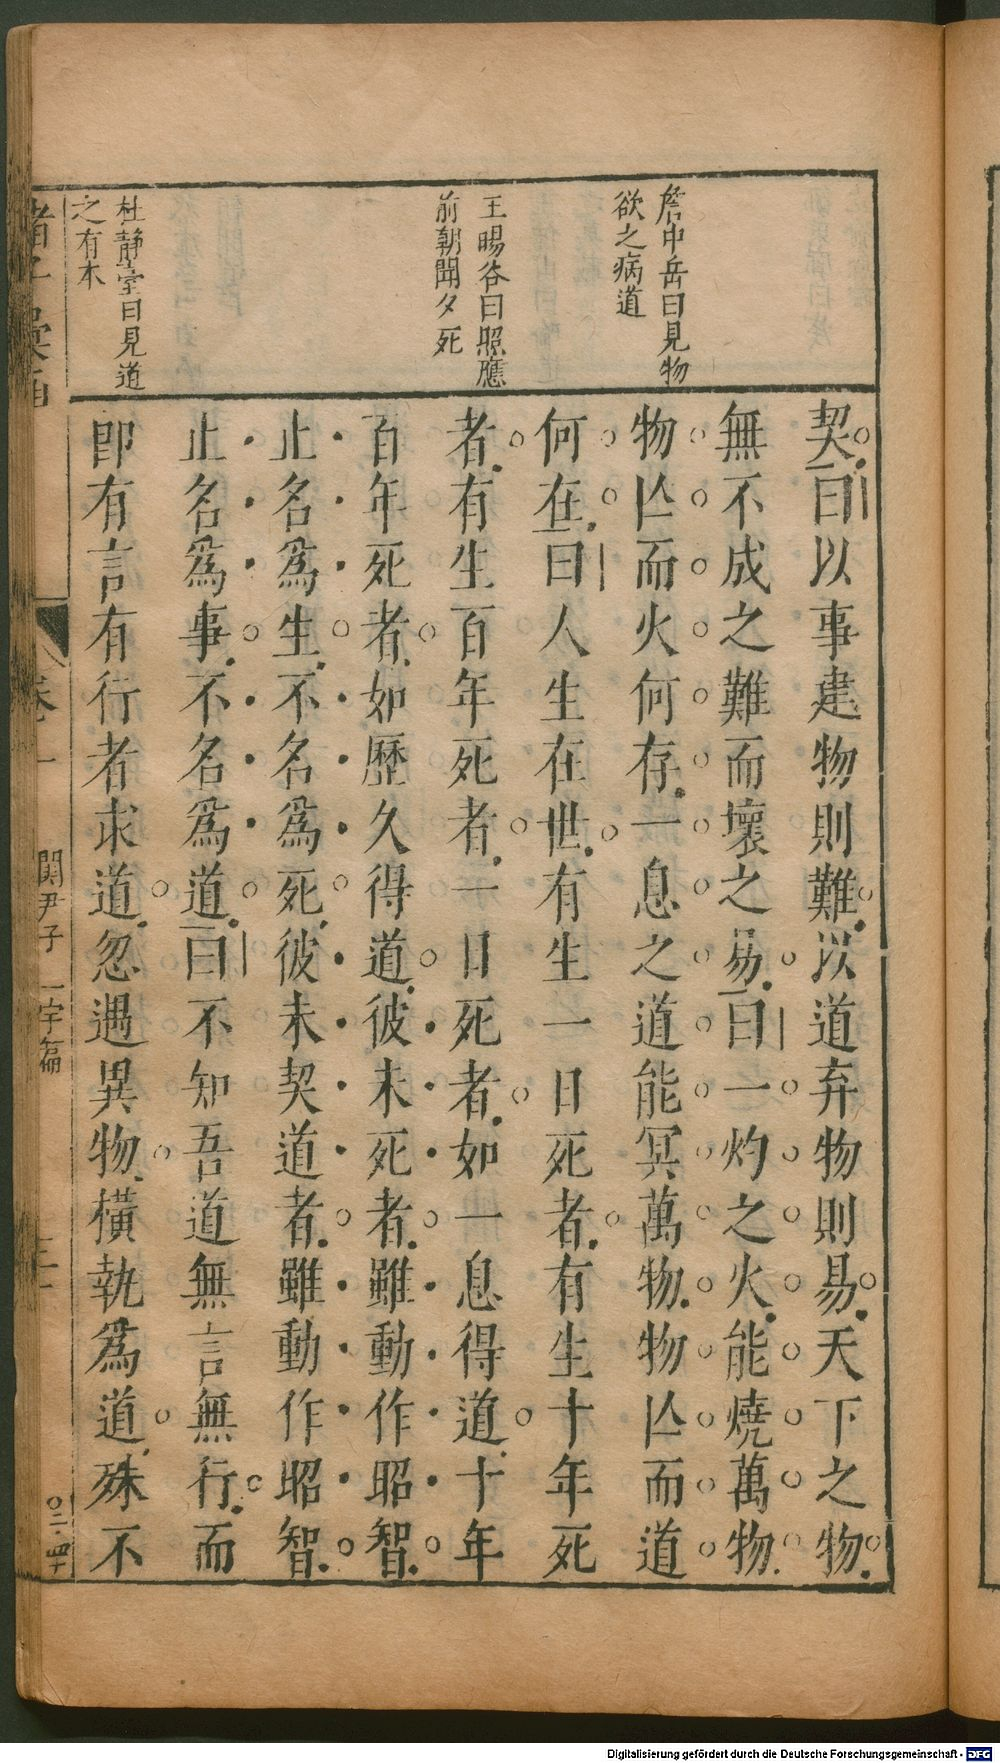 詹中岳曰見物
欲之病道
王暘谷曰照應
前朝聞夕死
杜靜臺曰見道
之有本
契曰以事建物則難以道弃物則易天下之物
無不成之難而壞之易曰一灼之火能燒萬物
物亾而火何存一息之道能冥萬物物亾而道
何在曰人生在世有生一日死者有生十年死
者有生百年死者一日死者如一息得道十年
百年死者如歷久得道彼未死者雖動作昭智
止名為生不名為死彼未契道者雖動作昭智
止名為事不名為道曰不知吾道無言無行而
卽有言有行者求道忽遇異物橫執為道殊不
諸子彙函
卷一
関尹子 一宇篇
Digitalisierung gefördert durch die Deutsche Forschungsgemeinschaft - DFG